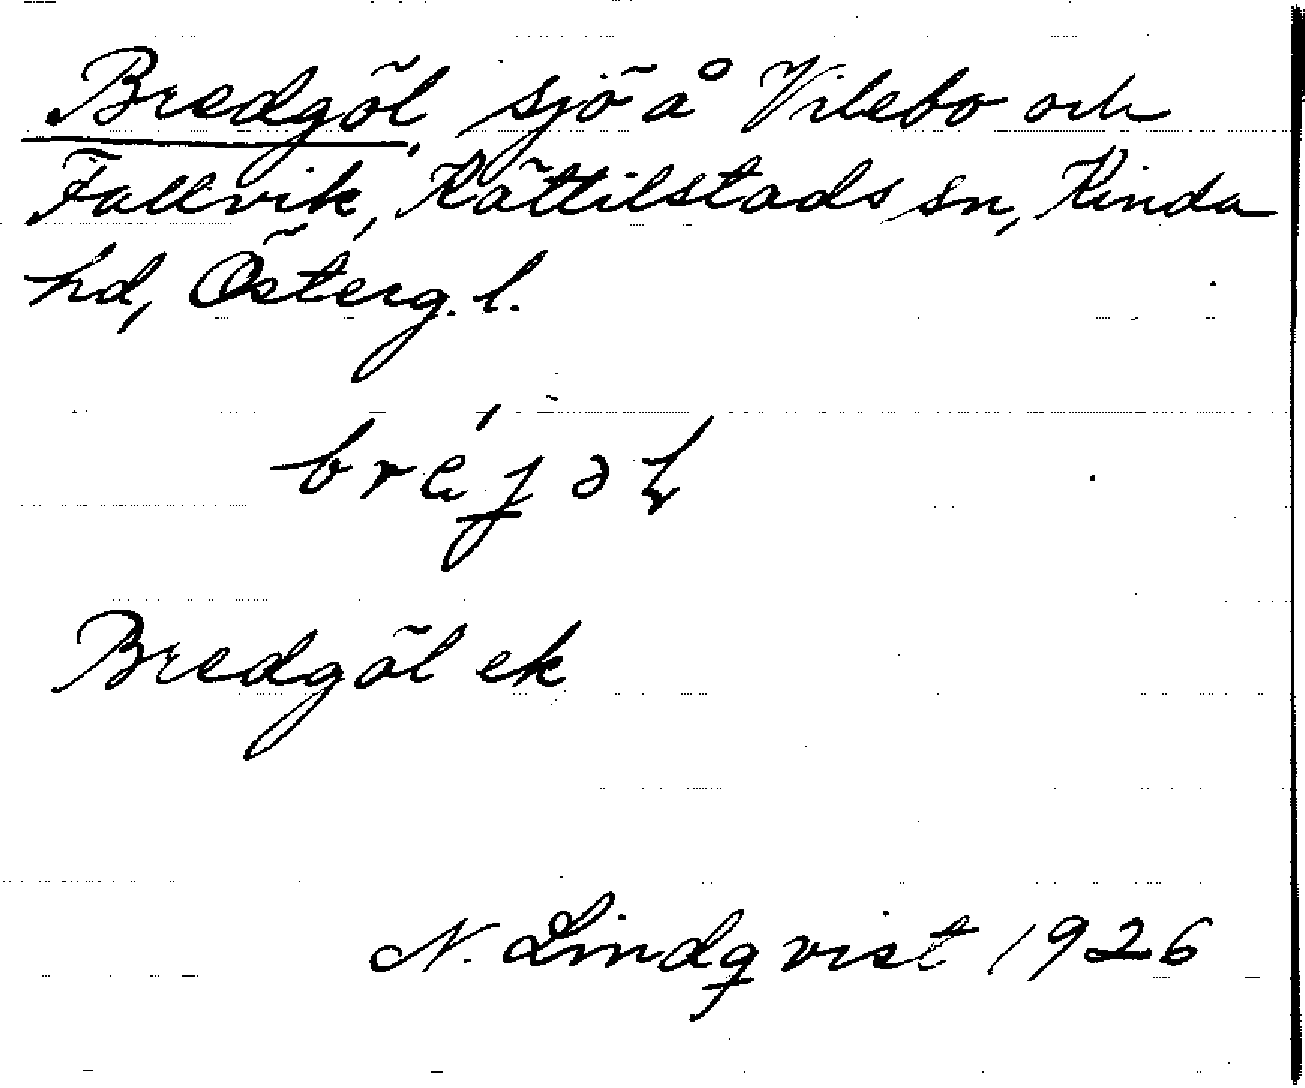 Bredgöl, sjö å Vilebo och
Fallvik, Kättilstads sn, Kinda
hd, Österg. l.
Bredgöl ek
N. Lindqvist 1926